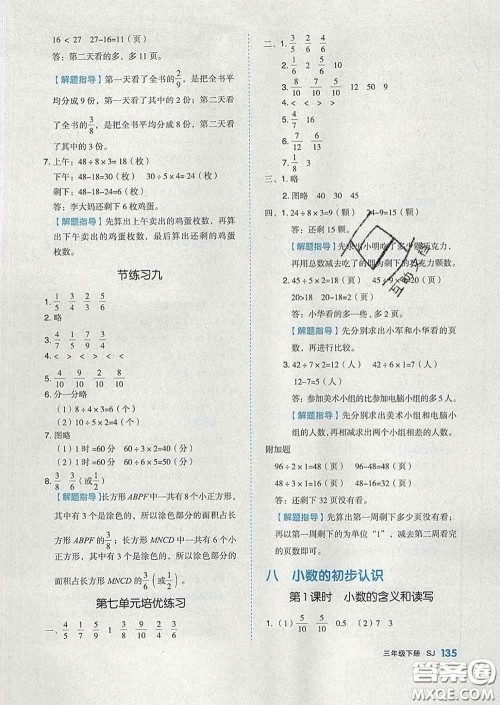 16 < 27　27-16=11（页）
答：第二天看的多，多11页。
【解题指导】第一天看了全书的2/9，是把全书平
均分成9份，第一天看了其中的2份；第二天看
了全书的3/8，是把全书平均分成8份，第二天看
了其中的3份。
7. 上午：48÷8×3=18（枚）
下午：48-18=30（枚）　30÷5×4=24（枚）
剩下：48-18-24=6（枚）
答：李大妈还剩下6枚鸡蛋。
【解题指导】先算出上午卖出的鸡蛋枚数，再算
出下午卖出的鸡蛋枚数，最后算出还剩的鸡蛋
枚数。
节练习九
1. 1/5　3/4　2/5　3/6
2. 略
3. 1/7　1/7　4/7　4/7
4. <　<　<　>　<　>
5. 4/10　5/10　2/10　4/8
6. 分一分略
（1）8÷4×3=6（个）
（2）10÷5×2=4（个）
7. 图略
（1）1时=60分　60÷3×2=40（分）
（2）1时=60分　60÷5×4=48（分）
8. 3/8　3/6（或1/2）
【解题指导】长方形ABPF中一共有8个小正方形，
其中有3个是涂色的，所以涂色部分的面积占长
方形ABPF的3/8；长方形MNCD中一共有6个小
正方形，其中有3个是涂色的，所以涂色部分的
面积占长方形MNCD的3/6（或1/2）。
第七单元培优练习
一、4/5　1/5　5/7　1　4/9　1/9
二、1. 1/2　2/4　1/6
2. 8/10　5/10　5/10　12　50　9
3. >　<　<　=
4. 2/10　5/10　2/4
5. 1/6　4/5
6. 1/7　4/8
7. 3/5　4/10
三、1. 略
2. 图略　40　30　45
四、1. 24÷8×3=9（颗）　24-9=15（颗）
答：还剩15颗。
【解题指导】先求出小明吃了多少颗巧克力，
再用总数减去吃了的即为剩下的巧克力颗数。
2. 45÷5×2=18（支）　45÷9×4=20（支）
20>18　20-18=2（支）
答：小华看的多一些，多2支。
【解题指导】先分别求出小军和小华看的页
数，再进行比较。
3. 42÷7×2=12（人）　42÷6×1=7（人）
12-7=5（人）
答：参加美术小组的比参加电脑小组的多5人。
【解题指导】先分别求出美术小组和电脑小组
的人数，再相减求出两个小组相差的人数。
附加题
96÷2×1=48（页）　96-48=48（页）
48÷3×2=32（页）　48-32=16（页）
答：还剩下32页没有看。
【解题指导】先算出第一周剩下多少页没有看；
再以第一周剩下的为单位“1”，减去第二周看
的页数即可。
八　小数的初步认识
第1课时　小数的含义和读写
1.（1）5/10　5/10　0.5　（2）3　7/10
三年级下册　SJ　135
答案圈
MXQE.COM